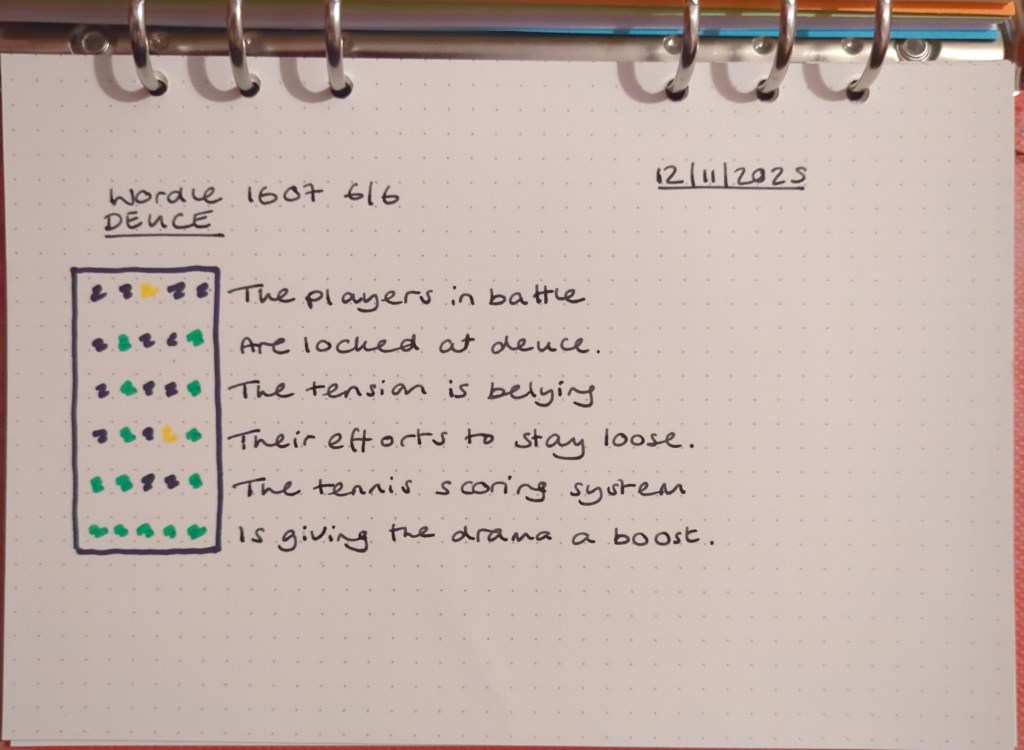 12/11/2025
Wordle 1607 6/6
DEUCE
The players in battle
Are locked at deuce.
The tension is belying
Their efforts to stay loose.
The tennis scoring system
Is giving the drama a boost.